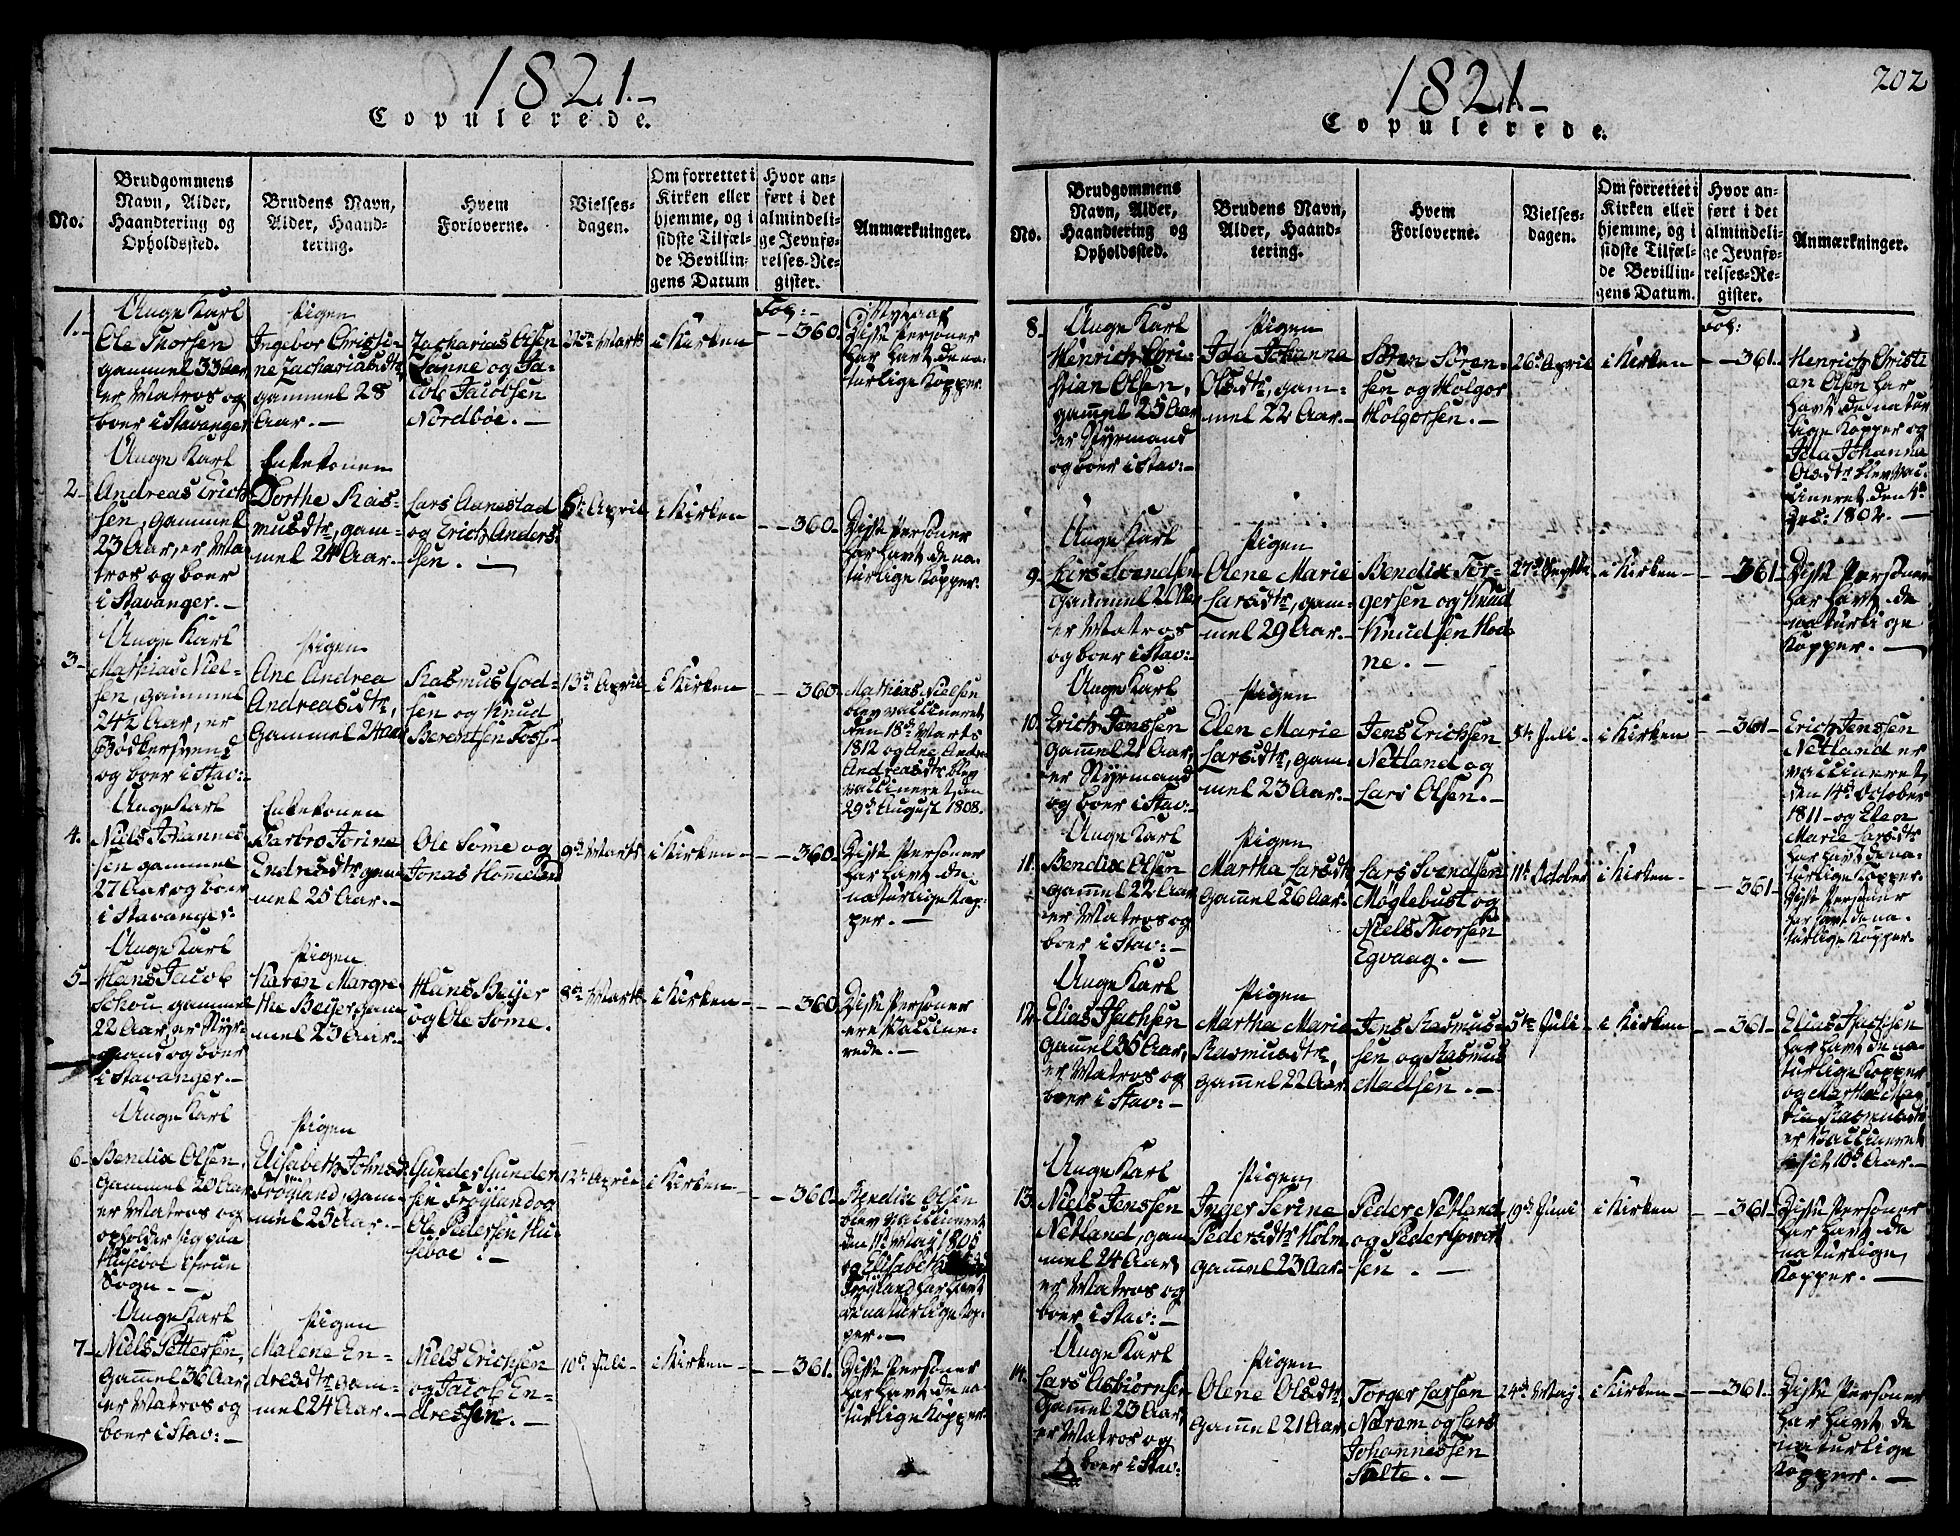 1821.-
Copulerede.
No.
Brudgommens
Navn, Alder,
Haandtering og
Opholdssted.
Brudens Navn,
Alder, Haand-
tering.
Hvem
Forloverne.
Vielses-
dagen.
Om forrettet i
Kirken eller
hjemme, og i
sidste Tilfæl-
de Bevillin-
gens Datum
Hvor an-
ført i det
almindeli-
ge Jevnfø-
relses-Re-
gister.
Anmærkninger.
1.-
Unge Karl
Ole Thorsen
gammel 33 Aar
er Matros og
boer i Stavanger
Pigen
Ingebor Christi-
ne Zachariasdtr
gammel 28
Aar.-
Zacharias Olsen
og Ja-
cob Jacobsen
Nordboe.-
Marts
i Kirken
Fol:-
- -360.
Disse Personer
har havt de na-
turlige Kopper.
2-
Unge Karl
Andreas Erich-
sen, gammel
23 Aar, er Ma-
tros og boer
i Stavanger.-
Enkekonen
Dorthe Ras-
musdtr, gam-
mel 24 Aar.-
Lars Aanestad
og Erich Anders-
sen.-
6te April
i Kirken
- -360.
Disse Personer
har havt de na-
turlige Kopper.
3-
Unge Karl
Mathias Niel-
sen, gammel
24½ Aar, er
Bødkersvend
og boer i Stav:-
Pigen
Ane Andrea
Andreasdtr,
gammel 24 Aar
Rasmus God-
sen og Knud
Berentsen
13de April
i Kirken
- -360.
Mathias Nielsen
blev vaccineret
den 18de Marts
1812 og Ane Andrea
Andreasdtr blev
vaccineret den
29de August 1808.
4.
Unge Karl
Niels Johannes-
sen gammel
27 Aar og boer
i Stavanger.
Enkekonen
Barbro Jorine
Endresdtr gam-
mel 25 Aar.-
Ole Some og
Jonas Hommeland
9de Marts
i Kirken-
- -360.
Disse Personer
har havt de
naturlige Kop-
per.-
5-
Unge Karl
Hans Jacob
Schou gammel
22 Aar, er Styr-
mand og boer
i Stavanger.-
Pigen
Karen Margre-
the Beijer gam-
mel 23 Aar.-
Hans Beijer
og Ole Some.
8de Marts
i Kirken-
- -360
Disse Personer
ere Vaccine-
rede.-
6-
Unge Karl
Bendix Olsen,
gammel 20 Aar
er Matros og
opholder sig paa
Husebøe i
Sogn.-
Pigen
Elisabeth Johnsdr
Frøiland, gam-
mel 25 Aar.-
Gunder Gunder-
sen Frøyland og
Ole Pedersen Hu-
seboe.-
12te April
i Kirken-
- -360-
Bendix Olsen
blev vaccineret
den 11te May 1805
og Elisabeth
Frøiland har havt
de naturlige Kop-
per.-
7-
Unge Karl
Niels Pettersen,
gammel 36 Aar,
er Matros og
boer i Stav:-
Pigen
Malene En-
dresdtr, gam-
mel 24 Aar.-
Niels Erichsen
og Jacob En-
dressen.-
10de Juli-
i Kirken-
- -361.
Disse Personer
har havt de na-
turlige Kopper.
1821.-
202
Copulerede.
No.
Brudgommens
Navn, Alder,
Haandtering og
Opholdssted.
Brudens Navn,
Alder, Haand-
tering.
Hvem
Forloverne.
Vielses-
dagen.
Om forrettet i
Kirken eller
hjemme, og i
sidste Tilfæl-
de Bevillin-
gens Datum.
Hvor an-
ført i det
almindeli-
ge Jevnfø-
relses-Re-
gister.
Anmærkninger.
8-
Unge Karl
Henrich Chri-
stian Olsen,
gammel 25 Aar
er Styrmand
og boer i Stav:-
Pigen
Ida Johanna
Olsdtr, gam-
mel 22 Aar.-
Søren Søren-
sen og Holger
Holgersen.-
26de April
i Kirken
Fol:
- -361.
Henrich Christi
an Olsen har
havt de natur
lige Kopper og
Ida Johanna
Olsdtr blev vac-
cineret den
Dec: 1802.-
9-
Unge Karl
Lars Svendsen
gammel
er Matros
og boer i Stav:-
Pigen
Olene Marie
Larsdtr, gam-
mel 29 Aar.-
Bendix Tor-
gersen og Knud
Knudsen Hod-
ne.-
27de Septbr
i Kirken-
- -361-
Disse Personer
har havt de
naturlige
Kopper.-
10.
Unge Karl
Erich Jenssen
gammel 21 Aar,
er Styrmand
og boer i Stav:-
Pigen
Elen Marie
Larsdtr, gam-
mel 23 Aar.-
Jens Erichsen
Netland og
Lars Olsen.-
5te Juli-
i Kirken
- -361-
Erich Jenssen
Netland er
vaccineret
den 14de October
1811- og Elen
Marie Larsdtr
har havt de na-
turlige Kopper.
11.
Unge Karl
Bendix Olsen
gammel 22 Aar
er Matros og
boer i Stav:-
Pigen
Martha Larsdtr
gammel 26 Aar.-
Lars Svendsen
Møglebust og
Niels Thorsen
Egvaag.-
11te October
i Kirken-
- -361-
Disse Personer
har havt de na-
turlige Kopper.
12
Unge Karl
Elias Isachsen
gammel 35 Aar,
er Matros og
boer i Stav:-
Pigen
Martha Maria
Rasmusdtr,
gammel 22 Aar
Jens Rasmus-
sen og Rasmus
Madsen.-
5te Juli-
i Kirken
- -361-
Elias Isachsen
har havt de na-
turlige Kopper
og Martha Ma-
ria Rasmusdtr
er Vaccineret
i sit 10de Aar.-
13.
Unge Karl
Niels Jenssen
Netland, gam-
mel 24 Aar,
er Matros og
boer i Stav:-
Pigen
Inger Serine
Pedersdtr Holm
gammel 23 Aar-
Peder Netland
og Peder
sen.-
19de Juni
i Kirken
- -361-
Disse Personer
har havt de
naturlige
Kopper.-
14.
Unge Karl
Lars Asbiørnsen
gammel 23 Aar,
er Matros og
boer i Stav:
Pigen
Olene Olsdtr
gammel 21 Aar
Torger Larsen
og Lars
Johannessen
24de May
i Kirken-
- -361.
Disse Personer
har havt de
naturlige
Kopper.-